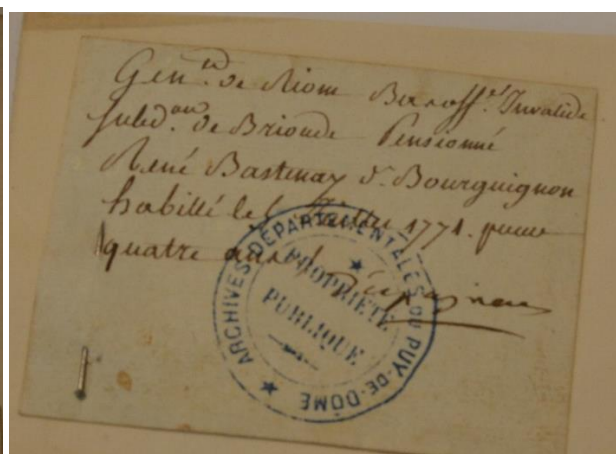 Gen.té de Riom Bas off.er Invalide
Subd.on de Brioude Pensionné
René Bastenay d. Bourguignon
habillé le Juillet 1771. pour
quatre ans
ARCHIVES DÉPARTEMENTALES DU PUY-DE-DÔME
PROPRIÉTÉ
PUBLIQUE